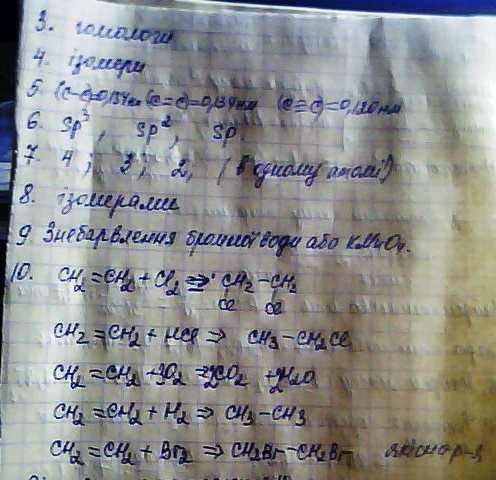 3. гомологи
4. ізомери
5. (C–C)=0,154нм (C=C)=0,134нм (C≡C)=0,120нм
6. sp³, sp², sp
7. 4; 3; 2, (в одному атомі)
8. ізомерами
9 Знебарвлення бромної води або KMnO₄.
10. CH₂=CH₂ + Cl₂ ⇒ CH₂–CH₂
Cl Cl
CH₂=CH₂ + HCl ⇒ CH₃–CH₂Cl
CH₂=CH₂ + 3O₂ = 2CO₂ + 2H₂O
CH₂=CH₂ + H₂ ⇒ CH₃–CH₃
CH₂=CH₂ + Br₂ ⇒ CH₂Br–CH₂Br якісна р-я